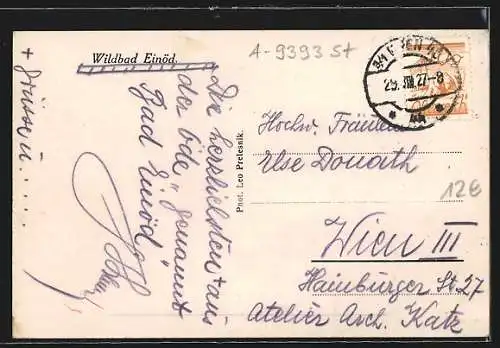 Wildbad Einöd.
A-9393 St
Die herzlichsten + aus
der öde, genannt
Bad Einöd"
+ Grüssen.....
Phot. Leo Prelesnik.
29. VIII. 27-8
Hochw. Fräulein
Ilse Donath
12€
Wien III
Hainburger St. 27
Atelier Arch. Katz